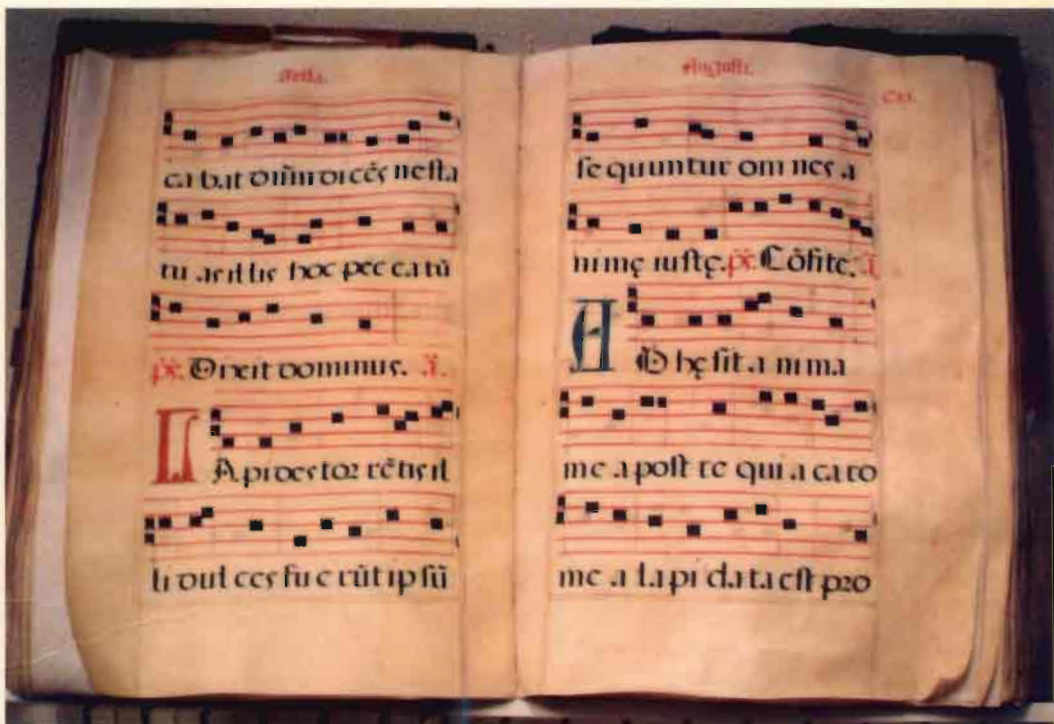 festa.
ca bat dñm dicēs ne sta
tu as il lis hoc pec ca tū
ps. Dixit dominus. ā.
LA pides tor rētis il
li dul ces fu e rūt ip sū
Augusti.
CXI.
se quuntur om nes a
ni mę iustę. ps. Cōfite. ā
AD hę sit a ni ma
me a post te qui a ca ro
me a la pi da ta est pro